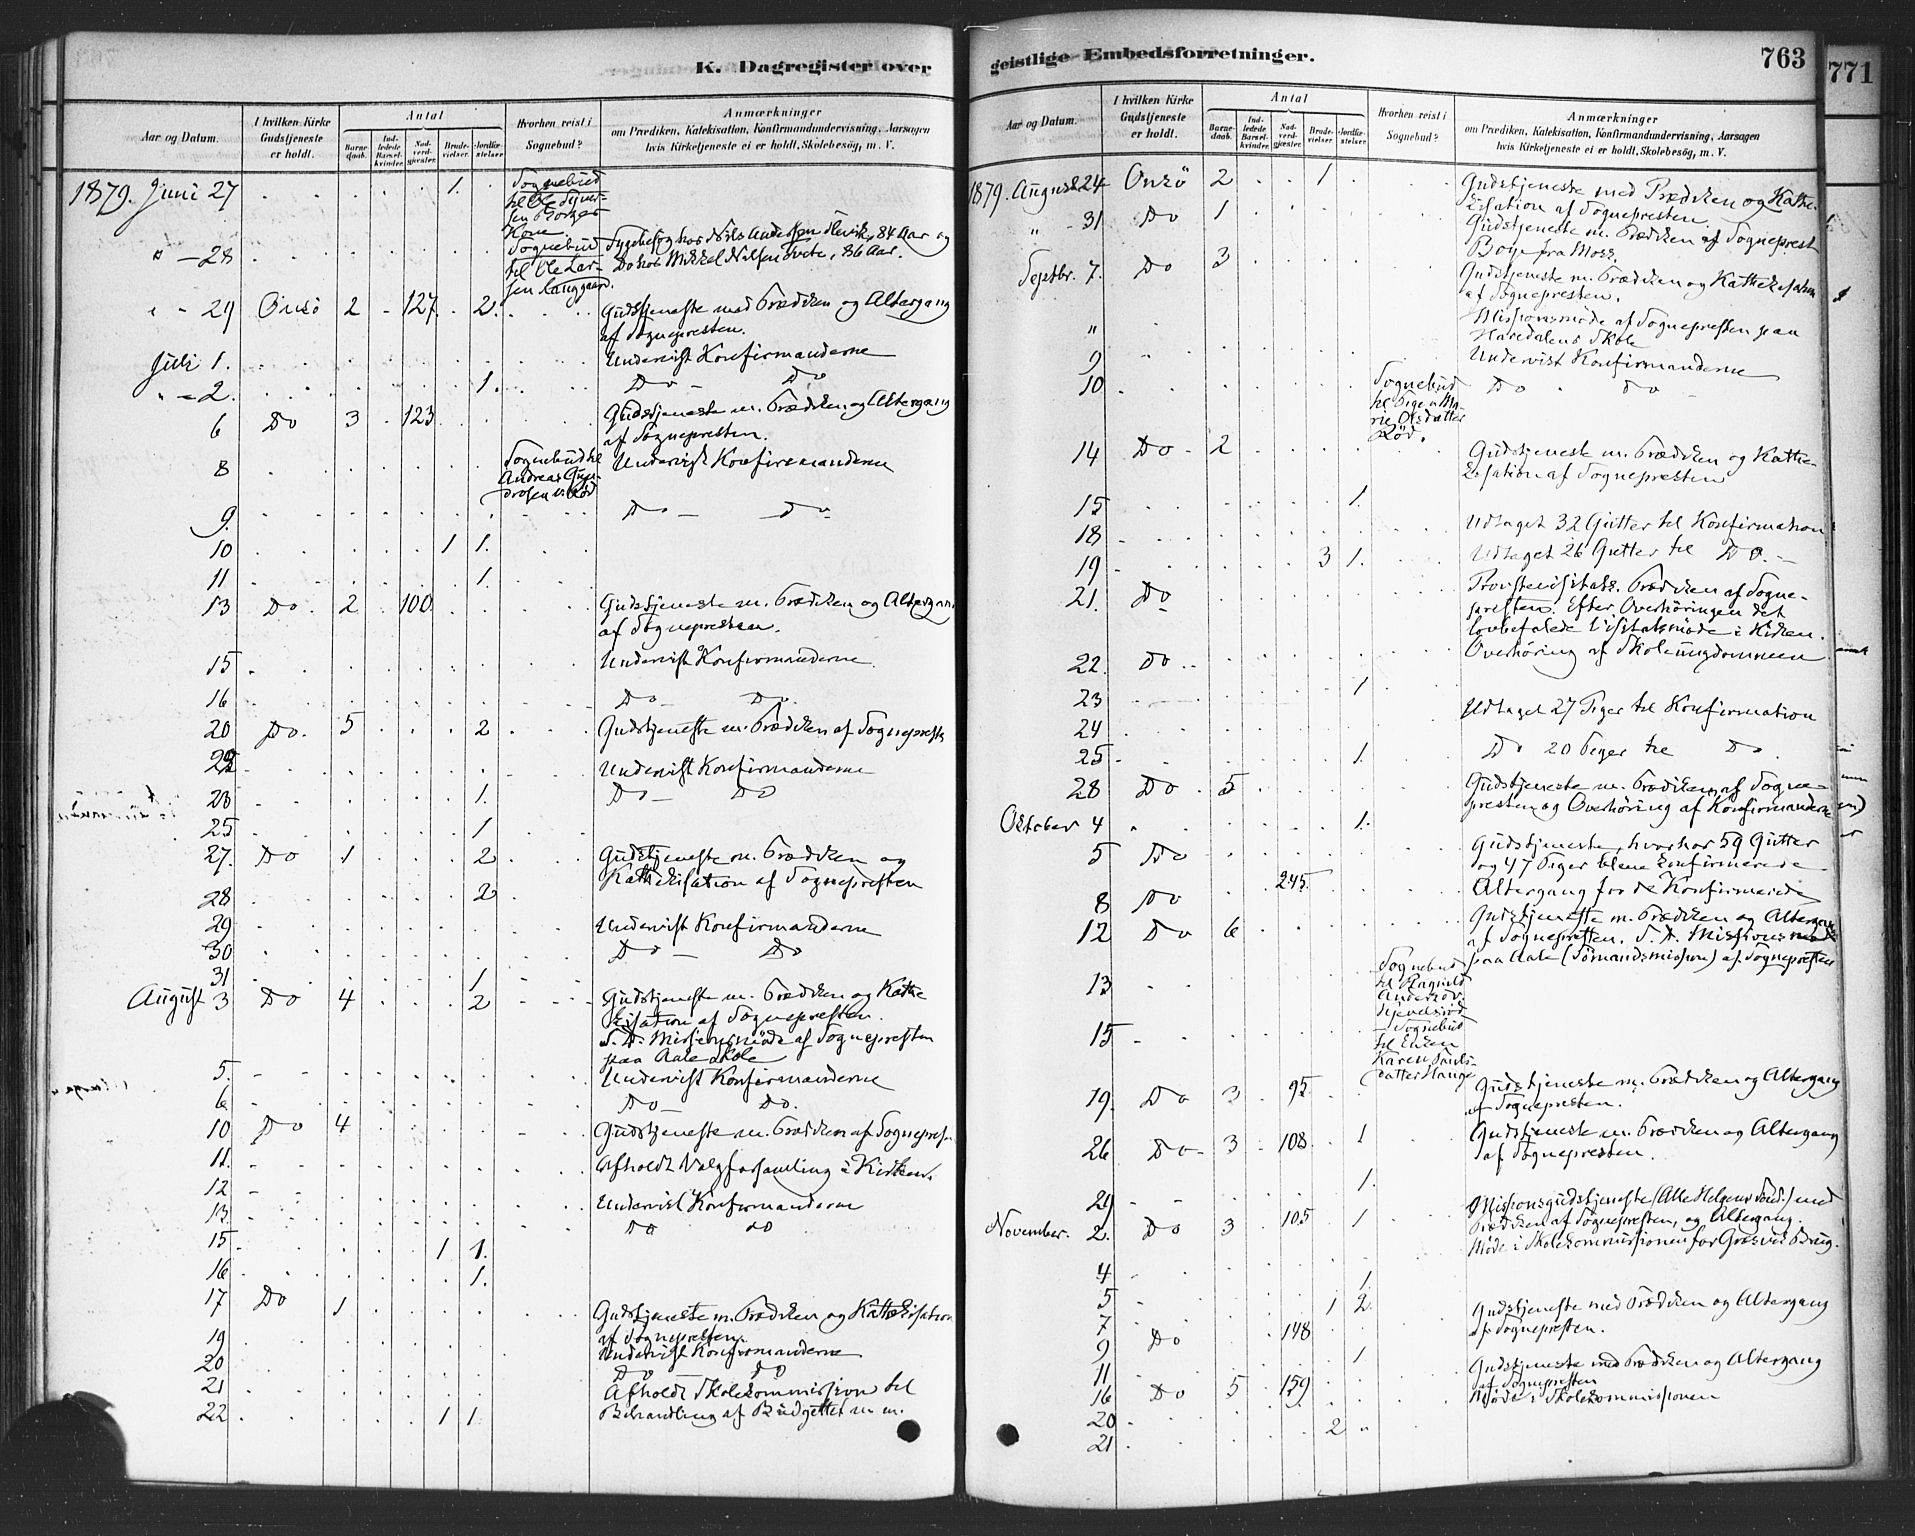 K. Dagregister over
Aar og Datum.
I hvilken Kirke Gudstjeneste er holdt.
Antal
Barnedaab.
Indledede Barselkvinder.
Nadverdgjæster.
Brudevielser.
Jordfæstelser.
Hvorhen reist i Sognebud?
Anmærkninger
om Prædiken, Katekisation, Konfirmandundervisning, Aarsagen
hvis Kirketjeneste ei er holdt, Skolebesög, m. V.
1879. Juni 27 1. Sognebud
til Ole
Kone.
" - 28 Sognebud til Ole Larsen Sygebesøg hos Nils Andersen 84 Aar og
Do hos Mikkel Nilsen 86 Aar.
" - 29 Onsö 2 127 2. Gudstjeneste med Prædiken og Altergang
af Sognepresten.
Juli 1. Undervist Konfirmanderne
" - 2. 1. Do - Do
6 Do 3 123 Gudstjeneste m. Prædiken og Altergang
af Sognepresten.
8 Sognebud til Andreas Undervist Konfirmanderne
9. Do - Do
10 1 1.
11 1.
13 Do. 2 100 Gudstjeneste m. Prædiken og Altergang
af Sognepresten.
15 Undervist Konfirmanderne
16 Do - Do.
20 Do. 5 2 Gudstjeneste m. Prædiken af Sognepresten
22 Undervist Konfirmanderne
23 1. Do - Do
25 1.
27. Do 1 2 Gudstjeneste m. Prædiken og
Kathekisation af Sognepresten
28 2
29 Undervist Konfirmanderne
30 Do - Do
31 1
August 3 Do 4 2 Gudstjeneste m. Prædiken og Kathekisation af Sognepresten.
S. D. Missionsmöde af Sognepresten
paa Aale Skole
5. Undervist Konfirmanderne
6 Do - Do.
10 Do 4 Gudstjeneste m. Prædiken af Sognepresten
11. Afholdt Valgforsamling i Kirken.
12 Undervist Konfirmanderne
13. Do Do
15 1 1.
16 1.
17 Do 1 Gudstjeneste m. Prædiken og Kathekisation
af Sognepresten.
19 Undervist Konfirmanderne
20 Do Do
21 Afholdt Skolekommission til
22 1 1. Behandling af Budgettet m. m.
geistlige Embedsforretninger.
763
771
Aar og Datum.
I hvilken Kirke Gudstjeneste er holdt.
Antal
Barnedaab.
Indledede Barselkvinder.
Nadverdgjæster.
Brudevielser.
Jordfæstelser.
Hvorhen reist i Sognebud?
Anmærkninger
om Prædiken, Katekisation, Konfirmandundervisning, Aarsagen
hvis Kirketjeneste ei er holdt, Skolebesög, m. V.
1879. August 24 Onsö 2 1 Gudstjeneste med Prædiken og Kathekisation af Sognepresten
" - 31 Do 1 Gudstjeneste m. Prædiken af Sogneprest
Boye fra Moss.
Septbr. 7. Do 3 Gudstjeneste m. Prædiken og Kathekisation
af Sognepresten.
" Missionsmöde af Sognepresten paa
Haredalens Skole
9 Undervist Konfirmanderne
10 Sognebud til Pigen Marie Olsdatter Röd. Do " Do
14 Do 2 Gudstjeneste m. Prædiken og Kathekisation af Sognepresten
15 1.
18 Udtaget 32 Gutter til Konfirmation
19 3 1. Udtaget 26 Gutter til Do. -
21. Do Provstevisitats. Prædiken af Sognepresten. Efter Overhöringen det
lovbefalede Visitatsmöde i Kirken.
22. Do Overhöring af Skoleungdommen
23 1
24 Udtaget 27 Piger til Konfirmation
25 1. Do 20 Piger til Do
28 Do 5 Gudstjeneste m. Prædiken af Sognepresten og Overhöring af Konfirmanderne
Oktober 4 1.
5 Do Gudstjeneste, hvorhos 59 Gutter
og 47 Piger blene konfirmerede
8 Do 245. Altergang for de Konfirmerede
12 Do 6 Gudstjeneste m. Prædiken og Altergang
af Sognepresten. S. D. Missionsmöde
paa Aale (Sömandsmission) af Sognepresten
13 Sognebud
15 Sognebud til Enken Karen
19. Do 3 95. Gudstjeneste m. Prædiken og Altergang
af Sognepresten.
26 Do 3 108 1 Gudstjeneste m. Prædiken og Altergang
af Sognepresten.
29 1.
November. 2. Do 3 105 1 Missionsgudstjeneste (Alle Helgens Sönd.) med
Prædiken af Sognepresten, og Altergang.
4 Möde i Skolekommissionen for Græsvik Brug.
5 1.
7 1 2.
9 Do 148 Gudstjeneste med Prædiken og Altergang
af Sognepresten.
11 1
16 Do 5 159 Gudstjeneste med Prædiken og Altergang
af Sognepresten
20 Möde i Skolekommissionen
21 2 "